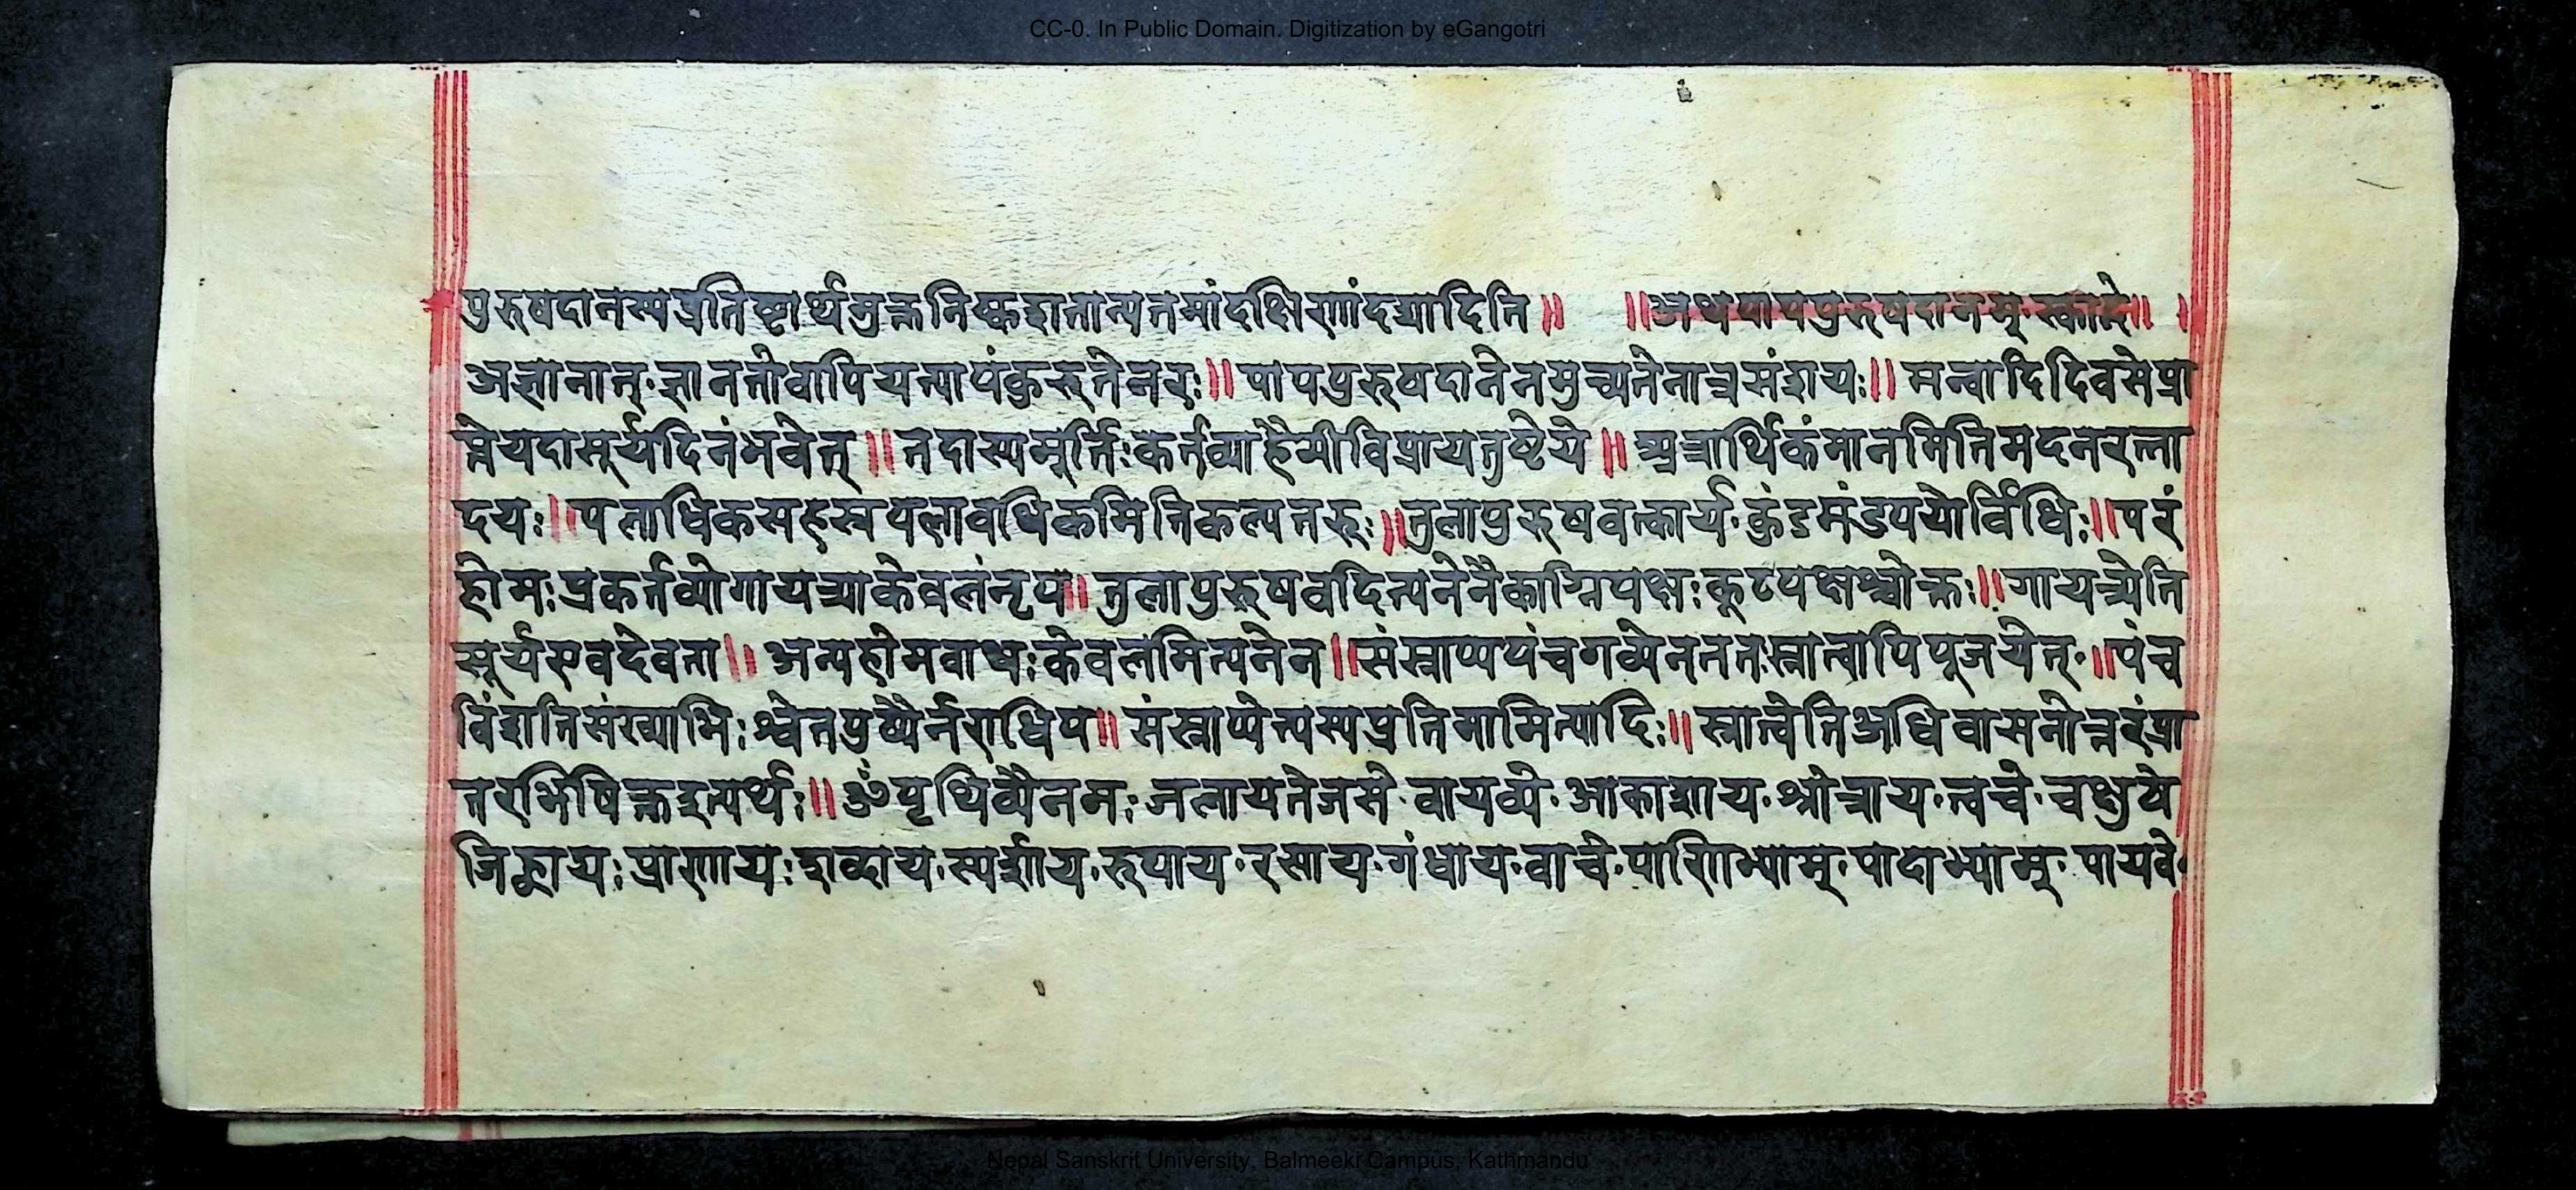 CC-0. In Public Domain. Digitization by eGangotri
पुरुषदानस्यप्रतिष्ठार्थमुक्तनिष्कद्दातान्यतमांदक्षिणांदद्यादिति॥ ॥अथपापपुरुषदानम्·स्कान्दे॥ ।
अज्ञानात्·ज्ञानतोवापियत्पापंकुरुतेनरः॥ पापपुरुषदानेनमुच्यतेनात्रसंशयः॥ मन्वादिदिवसेप्रा
प्तेयदासूर्यदिनंभवेत्॥ तदास्यमूर्त्तिःकर्तव्याहैमीविप्रायतुष्टये॥ मानमितिमदनरत्ना
दयः॥पलाधिकसहस्रपलावधिकमितिकल्पतरुः॥तुलापुरुषवत्कार्य·कुंडमंडपयोर्विधिः॥परं
होमःप्रकर्तव्योगायत्र्याकेवलंनृप॥ तुलापुरुषवदित्यनेनैकाग्निपक्षःकूटपक्षश्चोक्तः॥गायत्र्येति
सूर्यएवदेवता॥ अन्यहोमवाधःकेवलमित्यनेन॥संस्नाप्यपंचगव्येनततःस्नात्वापिपूजयेत्·॥पंच
विंशतिसंख्याभिःश्वेतपुष्पैर्नराधिप॥ संस्नाप्येत्यस्यप्रतिमामित्यादिः॥ स्नात्वेतिअधिवासनोत्तरंप्रा
तरभिषिक्तइत्यर्थः॥ ॐपृथिव्यैनमः जलायतेजसे·वायव्ये·आकाशाय·श्रोत्राय·त्वचे·चक्षुषे
जिह्वायः घ्राणायः शब्दाय·स्पर्शाय·रूपाय·रसाय·गंधाय·वाचे·पाणिभ्याम्·पादाभ्याम्·पायवे·
Nepal Sanskrit University, Balmeeki Campus, Kathmandu